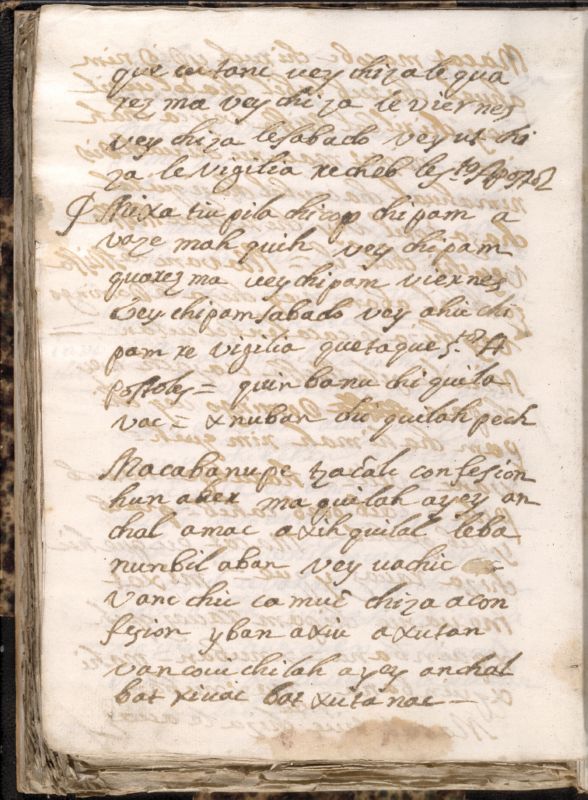 que cutanc vey chiza le qua
rezma vey chi za le viernes
vey chiza le sabado vey ut chi
za le vigilia recheb les stos Apostol
Mixa tiu pila chicop chi pam a
vaze mah quih vey chi pam
quarezma vey chi pam viernes
vey chi pam sabado vey ahic chi
pam re vigilia quetaque stos A
postoles = quin banu chi qui la
vac = xnuban chi quilah pech
Macabanupe tzacal confesion
hun aber ma quilah ayey an
chal amac axih quilal leba
numbil aban vey uachic
vanc chic ca muc chiza acon
fesion yban axiu axutan
van cou chilah ayey anchal
bat xiuac bat xutanac =